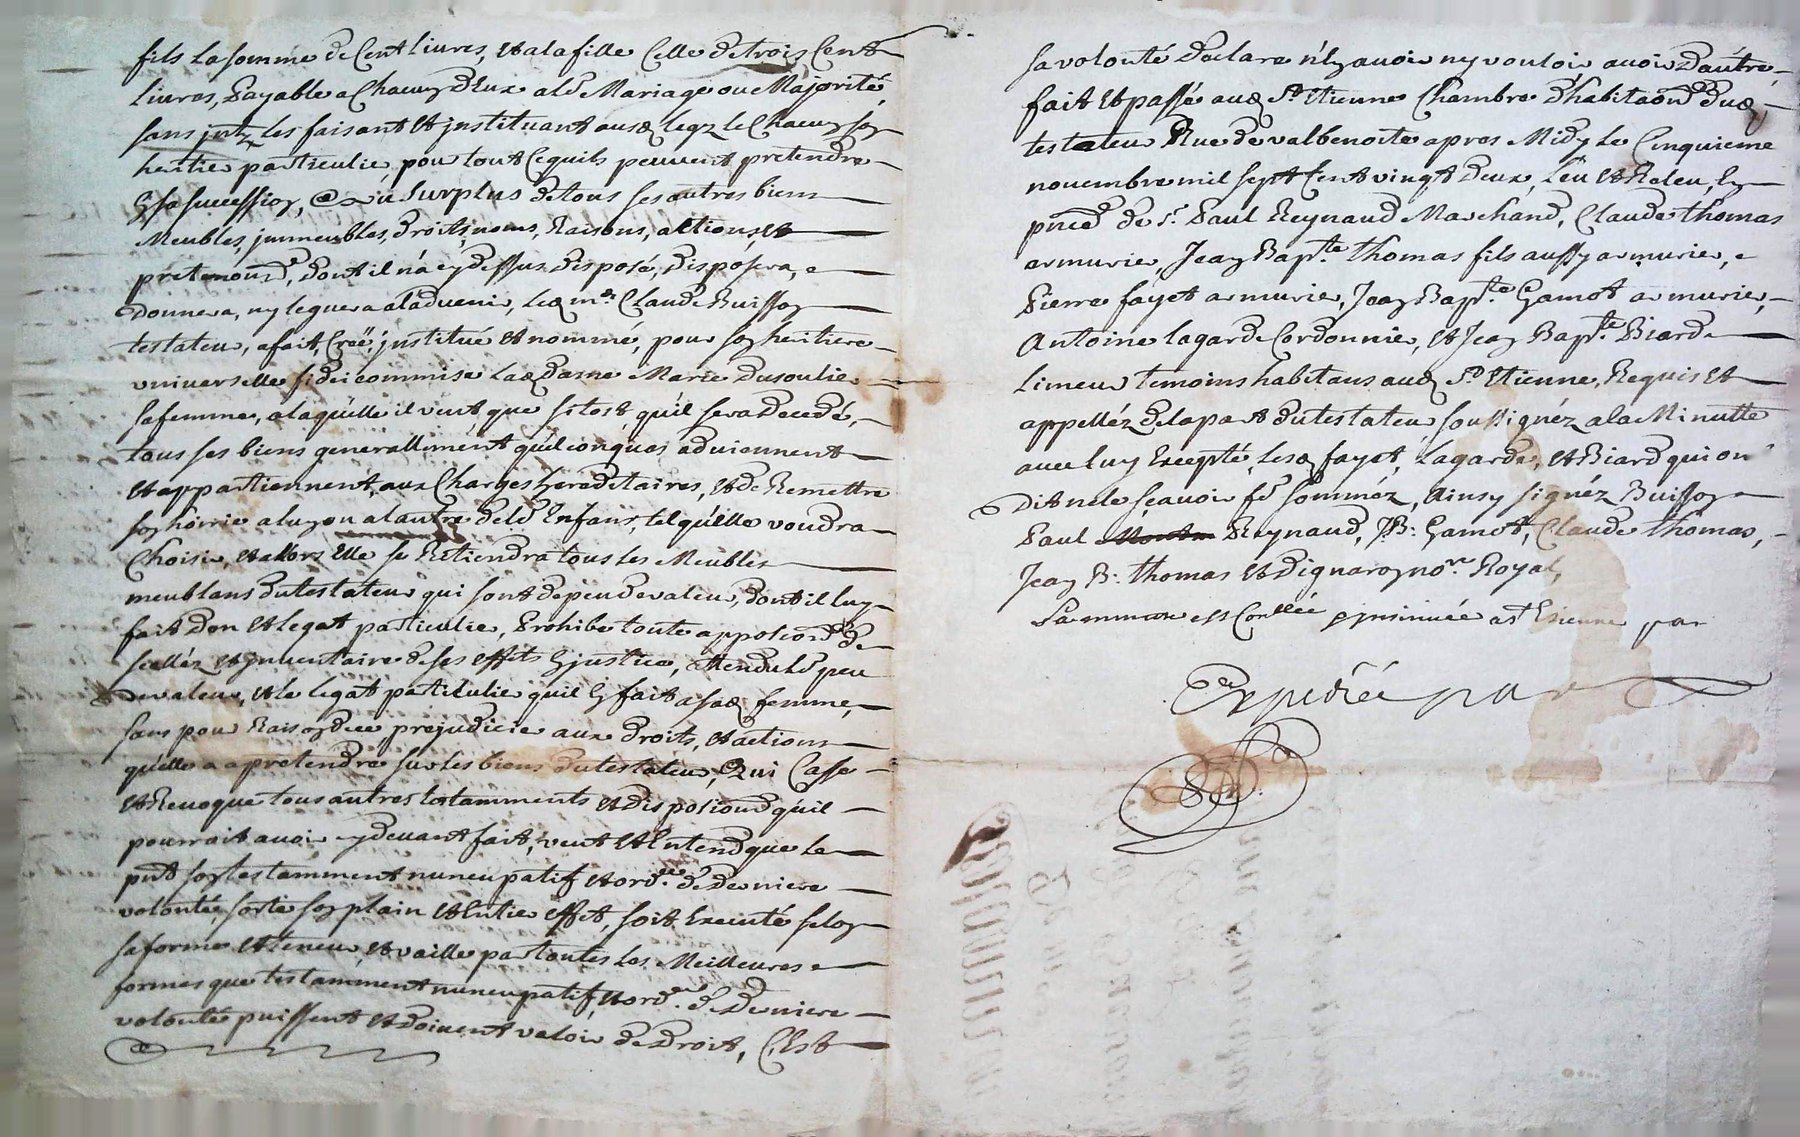 fils la somme de Cent livres, et a la fille Celle de trois Cent
livres, Payable a Chacun d'Eux a ld Mariage ou Majorité,
sans jntz les faisant et jnstituant ausd legz le Chacun son
heritier particulier, pour tout Ce quils peuvent pretendre
En sa succession, Et au Surplus de tous ses autres biens
Meubles, jmmeubles, droits, noms, Raisons, actions, et
pretentionds, dont il n'a cy dessus disposé, disposera,
donnera, ny leguera a ladvenir, Led mr Claude Buisson
testateur, a fait, Créé, jnstitué et nommé, pour son heritiere
universelle fideicommise Lad dame Marie Dusoulier
sa femme, a laquelle il veut que sitost qu'il sera decedé,
tous ses biens generallement quelconques adviennent
et appartiennent, aux Charges hereditaires, et de Remettre
son hoirie a lun ou a lautre desd Enfans, tel qu'elle voudra
Choisir, et allors Elle se Retiendra tous les Meubles
meublans du testateur qui sont de peu de valeur, dont il luy
fait don et legat particulier, Prohibe toute appositiond de
scellés et jnventaire de ses effets En justice, attendu ld peu
de valeur, et le legat particulier quil En fait a sad femme,
sans pour Raison de ce prejudicier aux droits, et actions
quelle a a pretendre sur les biens du testateur, Qui Casse
et Revoque tous autres testamments et dispositiond qu'il
pourrait avoir cy devant fait, veut et Entend que le
pnt son testamment nuncupatif et ordce de derniere
volonté, sorte son plain et Entier effet, soit Executé selon
sa forme et teneur, et vaille par toutes les Meilleures
formes que testamment nuncupatif, et ord.e de derniere
volonté puissent et doivent valoir de droit, C'Est
sa volonté declare n'En avoir ny vouloir avoir d'autre,
fait et passé aud St Etienne Chambre d'habitaond dud
testateur Rue de valbenoite apres Midy le Cinquieme
novembre mil sept Cent vingt deux, Leu et Releu, En
pnce de sr Paul Reynaud Marchand, Claude thomas
armurier, Jean Bapte thomas fils aussy armurier,
Pierre fayet armurier, Jean Bapte Gamot armurier,
Antoine lagarde Cordonnier, et Jean Bapte Biard
Limeur temoins habitans aud St Etienne, Requis et
appellez de la part du testateur soussignéz a la Minutte
avec luy Excepté, lesd fayet, Lagarde, et Biard qui on
dit ne le sçavoir fe somméz, Ainsy signéz Buisson
Paul Reynaud, J.B. Gamot, Claude thomas,
Jean B. thomas et Dignaron nore Royal,
La minute est Conllée E jnsinuée a st Etienne par
Expediée par